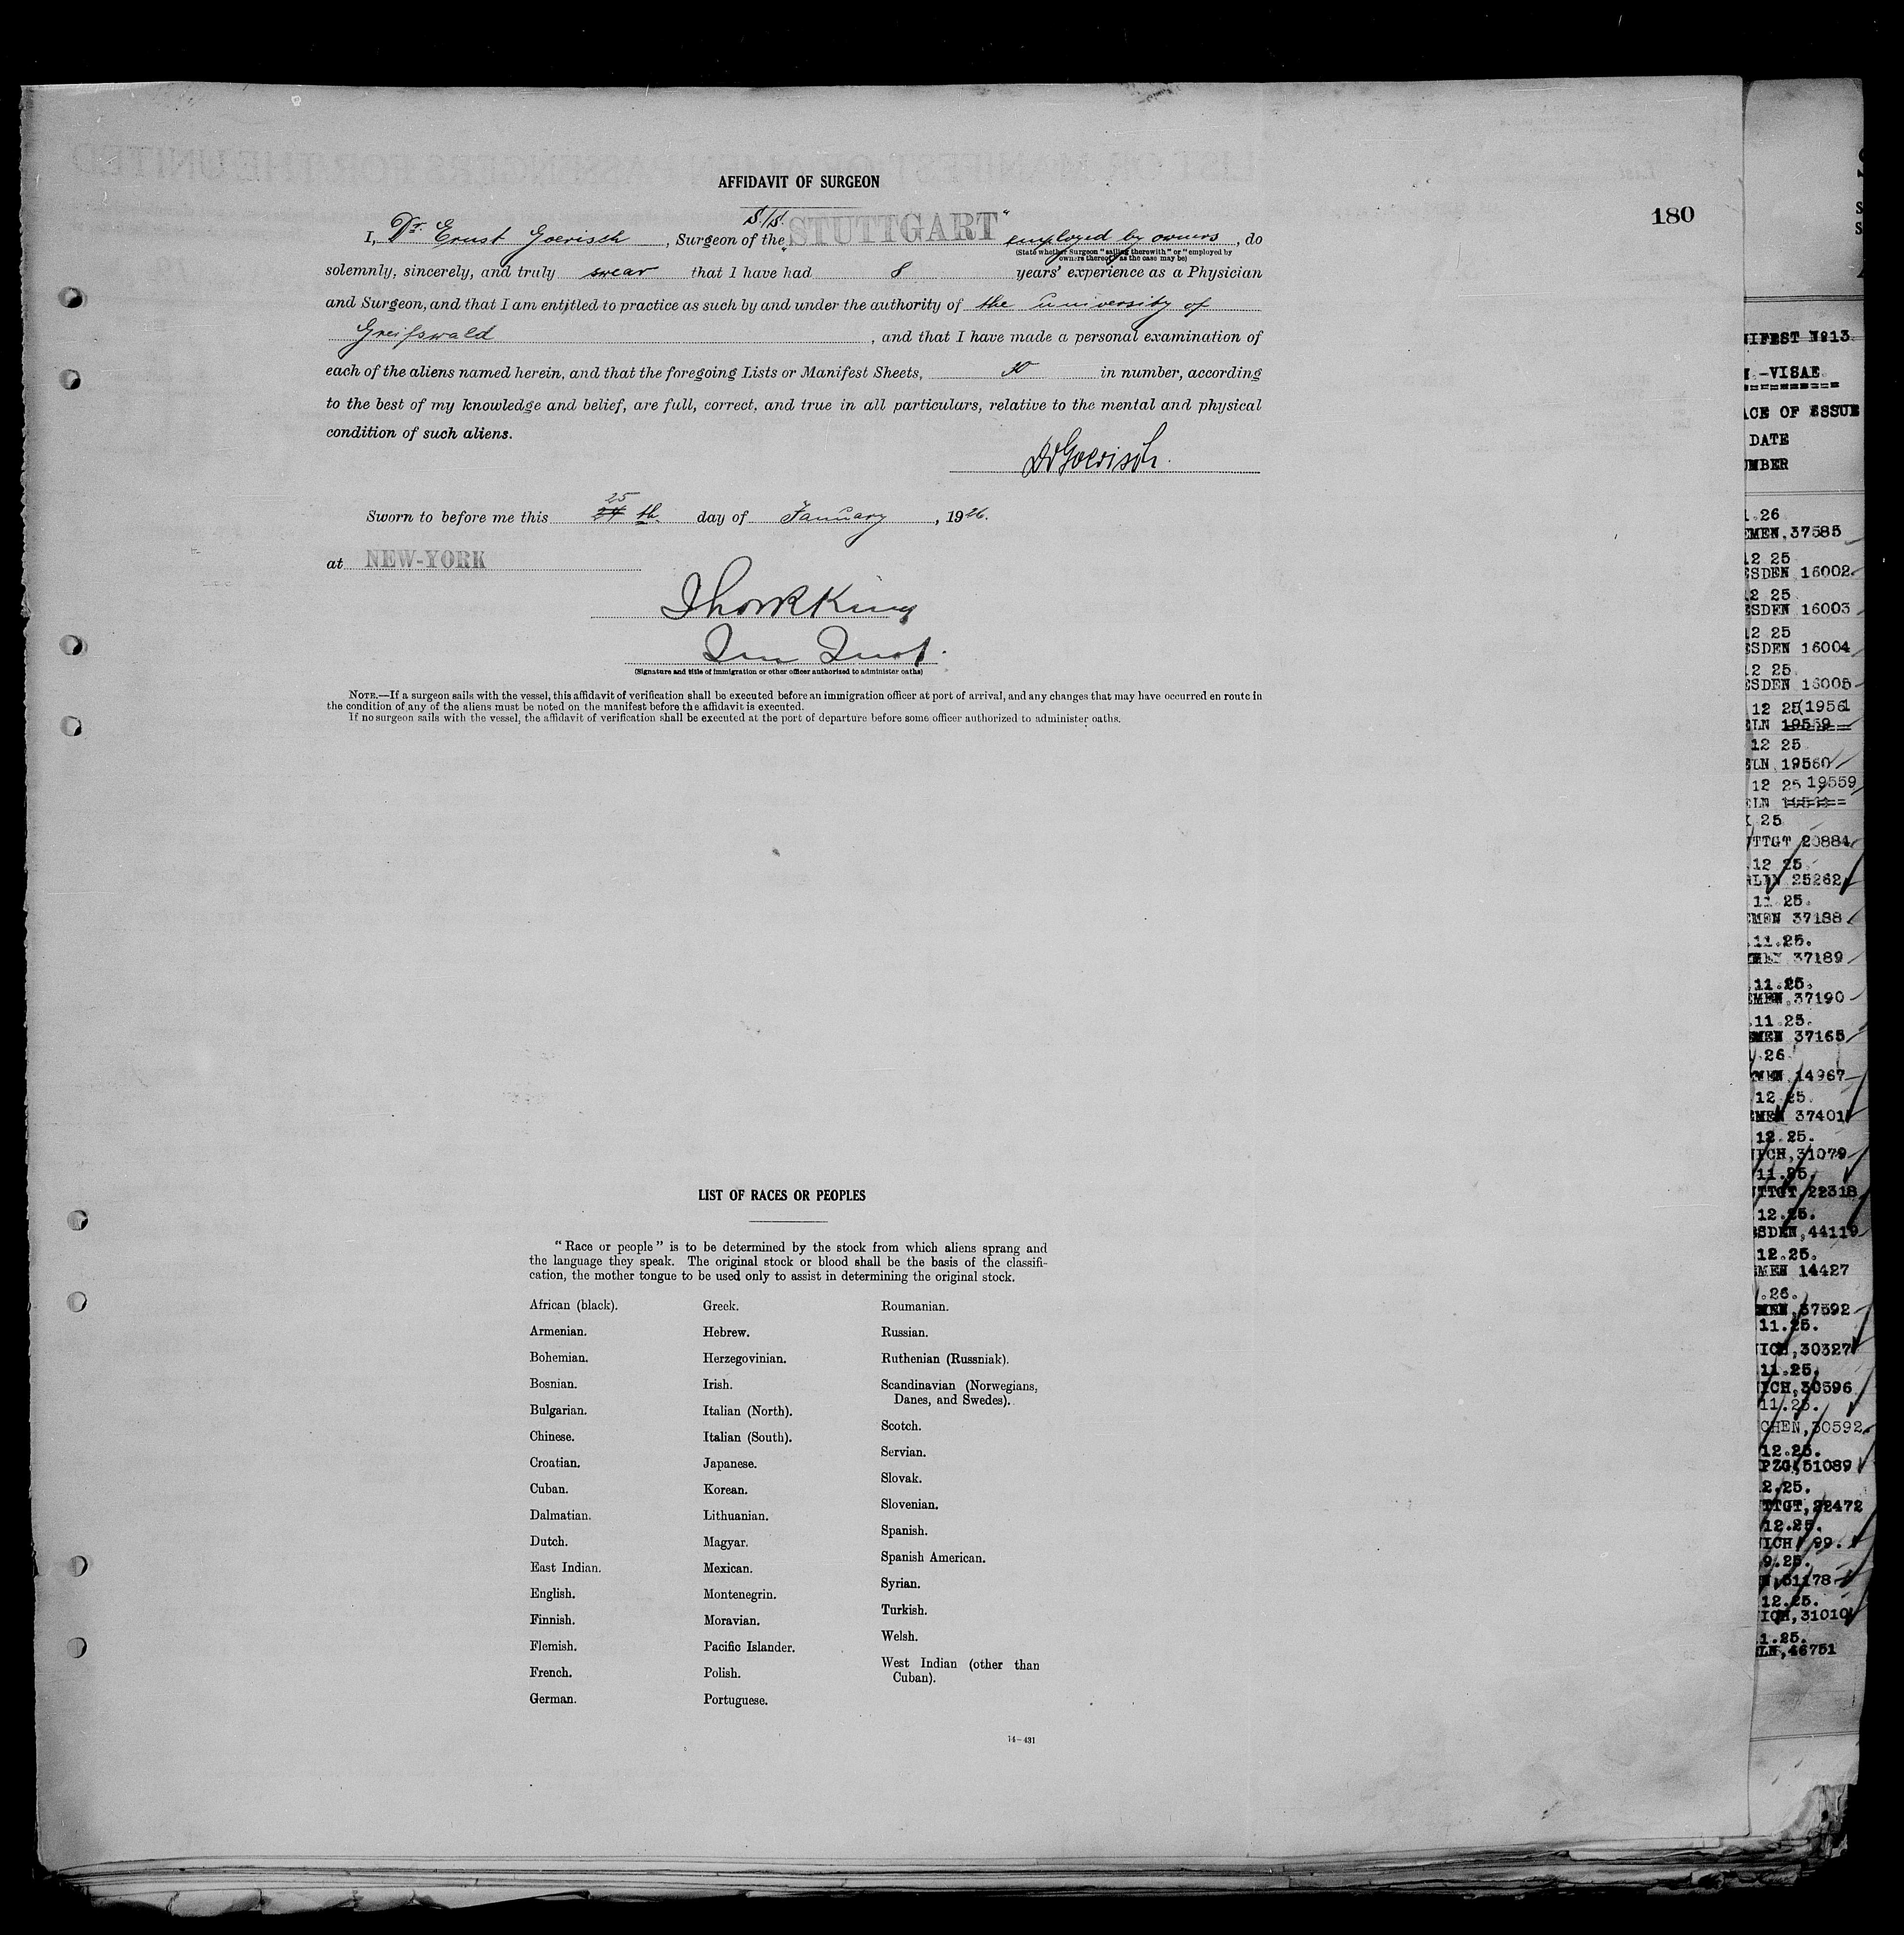 AFFIDAVIT OF SURGEON
180
S./S. "STUTTGART"
I, Dr. Ernst Goerisch, Surgeon of the employed by owners, do
(State whether Surgeon "sailing therewith" or "employed by
owners thereof," as the case may be)
solemnly, sincerely, and truly swear that I have had 8 years' experience as a Physician
and Surgeon, and that I am entitled to practice as such by and under the authority of the university of
Greifswald, and that I have made a personal examination of
each of the aliens named herein, and that the foregoing Lists or Manifest Sheets, in number, according
to the best of my knowledge and belief, are full, correct, and true in all particulars, relative to the mental and physical
condition of such aliens.
Dr Goerisch.
25
Sworn to before me this 24 th. day of January, 1926.
at NEW-YORK
King
(Signature and title of immigration or other officer authorized to administer oaths)
NOTE.—If a surgeon sails with the vessel, this affidavit of verification shall be executed before an immigration officer at port of arrival, and any changes that may have occurred en route in
the condition of any of the aliens must be noted on the manifest before the affidavit is executed.
If no surgeon sails with the vessel, the affidavit of verification shall be executed at the port of departure before some officer authorized to administer oaths.
LIST OF RACES OR PEOPLES
"Race or people" is to be determined by the stock from which aliens sprang and
the language they speak. The original stock or blood shall be the basis of the classifi-
cation, the mother tongue to be used only to assist in determining the original stock.
African (black).
Armenian.
Bohemian.
Bosnian.
Bulgarian.
Chinese.
Croatian.
Cuban.
Dalmatian.
Dutch.
East Indian.
English.
Finnish.
Flemish.
French.
German.
Greek.
Hebrew.
Herzegovinian.
Irish.
Italian (North).
Italian (South).
Japanese.
Korean.
Lithuanian.
Magyar.
Mexican.
Montenegrin.
Moravian.
Pacific Islander.
Polish.
Portuguese.
Roumanian.
Russian.
Ruthenian (Russniak).
Scandinavian (Norwegians,
Danes, and Swedes).
Scotch.
Servian.
Slovak.
Slovenian.
Spanish.
Spanish American.
Syrian.
Turkish.
Welsh.
West Indian (other than
Cuban).
14—431
NIFEST No13
-VISAE
ACE OF ISSUE
DATE
UMBER
.26
EMEN.37585
12 25
ESDEN 16002
12 25
ESDEN 16003
12 25
ESDEN 16004
12 25
ESDEN 16005
12 25(19561
ELN 19559
12 25
ELN 19560
12 25 19559
ELN
25
UTTGT 20884
.12 25
RLIN 25262
11 25.
EMEN 37188
.11.25.
37189
.11.25.
EMEN,37190
.11.25.
EMEN 37165
.26
EMEN,14967
.12 25.
EMEN 37401
12.25.
NICH,31079
11.25
UTTGT,22318
12.25.
ESDEN,44119
12.25.
EMEN 14427
.26.
EMEN,37592
11.25.
NICH,30327
11.25.
NICH,30596
11.25.
CHEN,30592
12.25.
PZG,51089
2.25.
TTGT,22472
12.25.
NICH, 99.
9.25.
31178
12.25.
NICH,31010
1.25.
ELN,46751